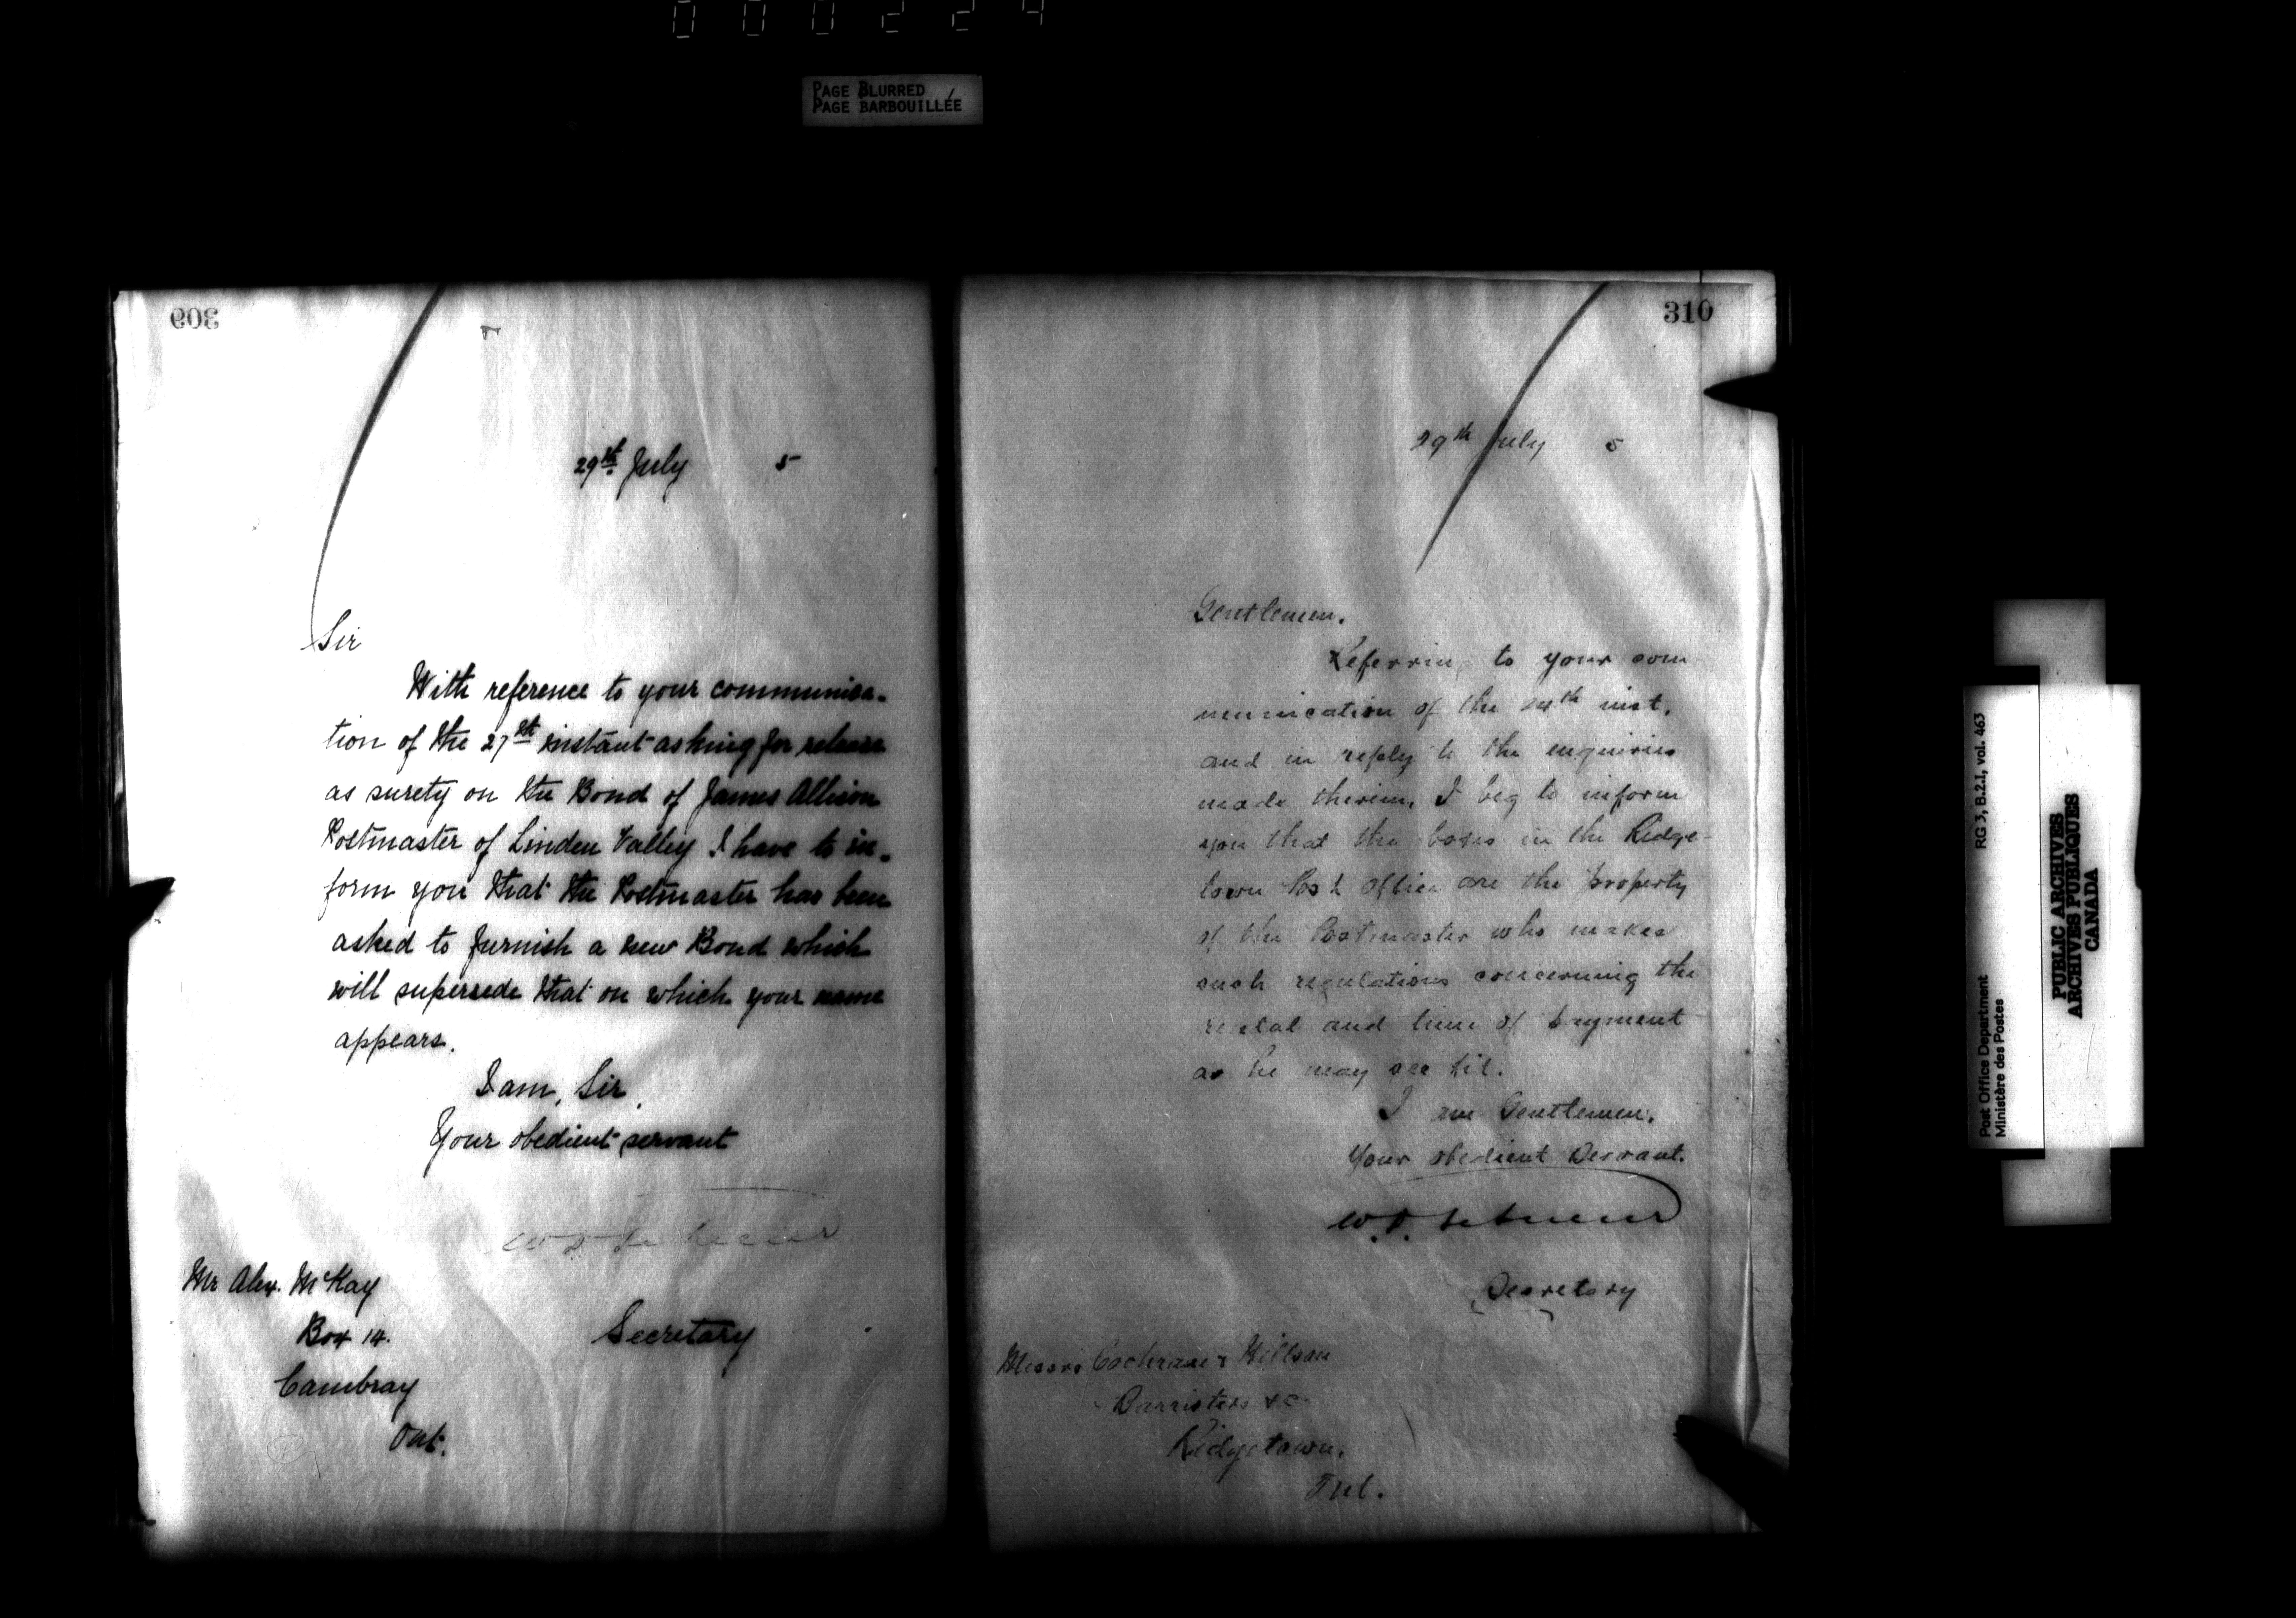 000224
PAGE BLURRED
PAGE BARBOUILLÉE
309
29th July 5
Sir
With reference to your communica-
tion of the 27th instant asking for release
as surety on the Bond of James Allison
Postmaster of Linden Valley I have to in-
form you that the Postmaster has been
asked to furnish a new Bond which
will supersede that on which your name
appears.
I am, Sir,
Your obedient servant
Secretary
Mr Alex. McKay
Box 14.
Cambray
Ont.
310
29th July 5
Gentlemen.
Referring to your com
munication of the 24th inst.
and in reply to the enquiries
made therein, I beg to inform
you that the boxes in the Ridge-
town Post Office are the property
of the Postmaster who makes
such regulations concerning the
rental and time of payment
as he may see fit.
I am Gentlemen.
Your obedient Servant.
Secretary
Messrs Cochrane & Willson
Barristers &c
Ridgetown.
Ont.
Post Office Department RG 3, B.2.I, vol. 463
Ministère des Postes
PUBLIC ARCHIVES
ARCHIVES PUBLIQUES
CANADA